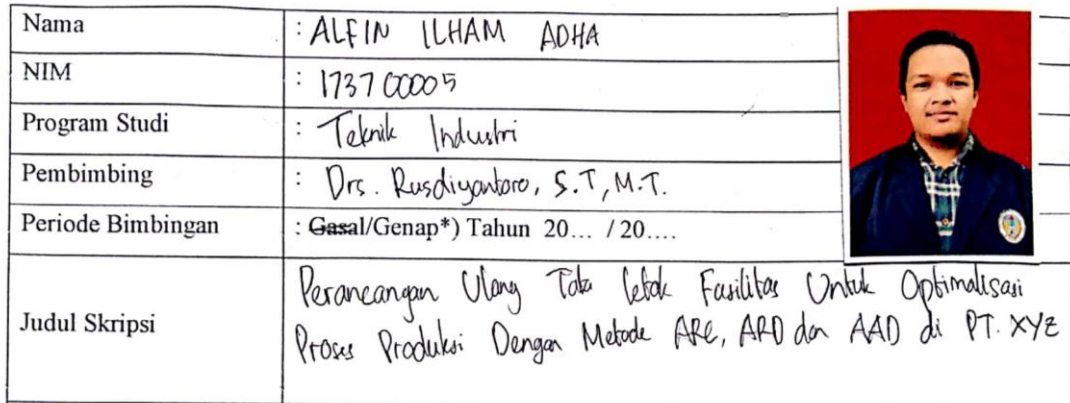 Nama : ALFIN ILHAM ADHA
NIM : 173700005
Program Studi : Teknik Industri
Pembimbing : Drs. Rusdiyantoro, S.T, M.T.
Periode Bimbingan : Gasal/Genap*) Tahun 20... / 20....
Judul Skripsi
Perancangan Ulang Tata letak Fasilitas Untuk Optimalisasi
Proses Produksi Dengan Metode ARC, ARD dan AAD di PT. XYZ